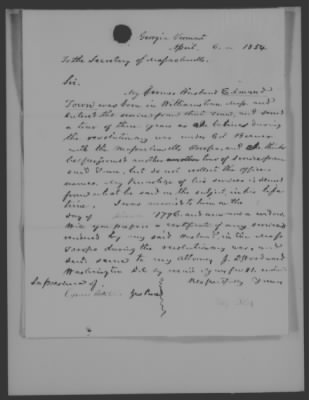 Georgia Vermont
April 6. 1854
To the Secretary of Massachusetts.
Sir.
My former Husband Edmund
Town was born in Williamstown Mass and
Enlisted the service from that Town, and served
a tour of three years as I believe during
the revolutionary war under Col
with the Massachusetts troops, and I think
he performed another another tour of service from
said Town, but do not recollect the officers
names. My knowledge of his services is derived
from what he said on the subject, in his life
time. I was married to him on the
day of 1796. and am now a widow.
Will you prepare a certificate of any service
rendered by my said Husband, in the Mass
troops during the revolutionary war, and
send same to my Attorney J.
Washington D.C. by mail
In presence of Respectfully Yours